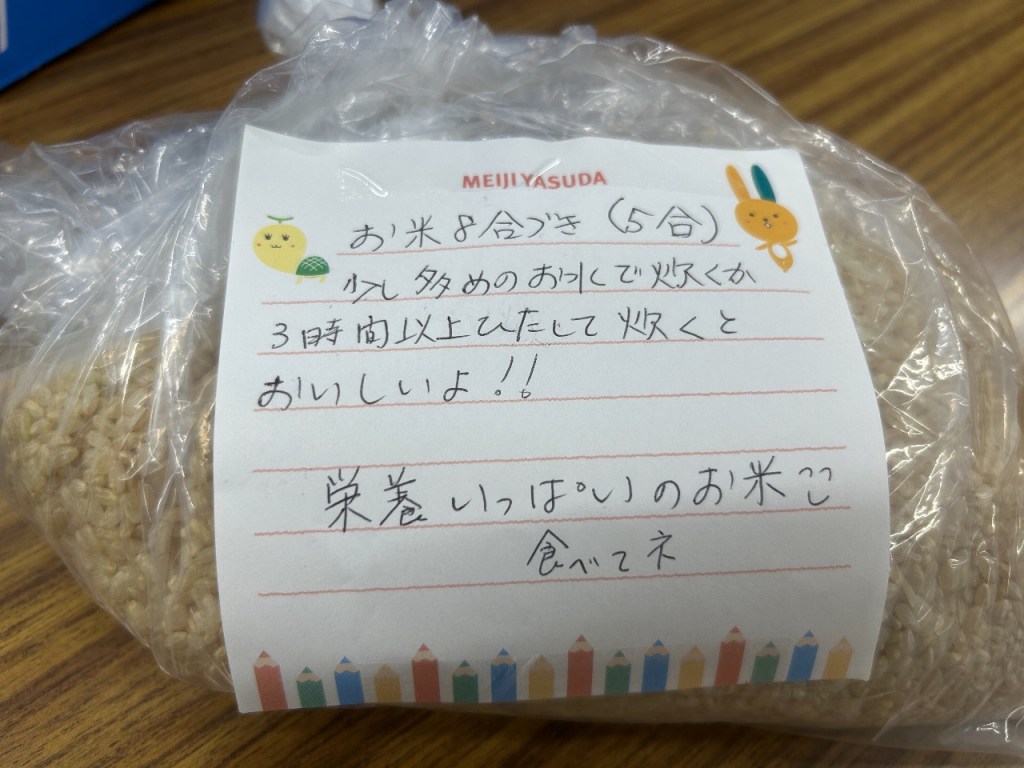 MEIJI YASUDA
お米8合づき(5合)
少し多めのお水で炊くか
3時間以上ひたして炊くと
おいしいよ!!
栄養いっぱいのお米
食べてネ